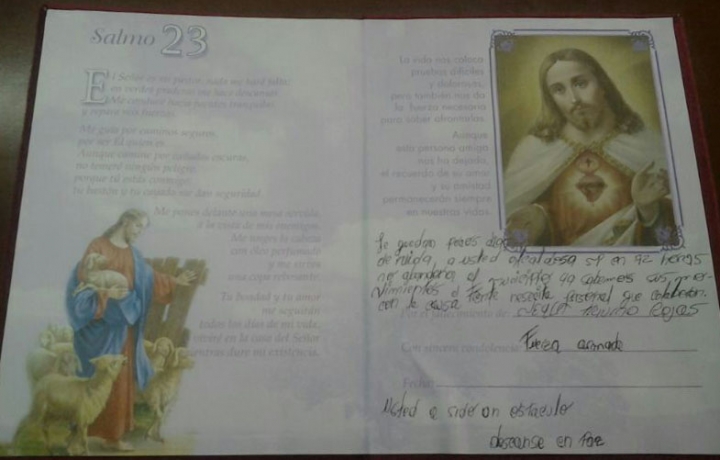 Salmo 23
El Señor es mi pastor, nada me hace falta:
en verdes praderas me hace descansar
Me conduce hacia fuentes tranquilas
y repone mis fuerzas.
Me guía por caminos seguros,
por ser El quien es.
Aunque camine por cañadas oscuras,
no temeré ningún peligro,
porque tú estás conmigo:
tu bastón y tu cayado me dan seguridad
Me pones delante una mesa servida,
a la vista de mis enemigos.
Me unges la cabeza
con óleo perfumado
y me sirves
una copa rebosante.
Tu bondad y tu amor
me seguirán
todos los días de mi vida,
viviré en la casa del Señor
mientras dure mi existencia.
La vida nos coloca
pruebas difíciles
y dolorosas,
pero también nos da
la fuerza necesaria
para saber afrontarlas.
Aunque
esta persona amiga
nos ha dejado,
el recuerdo de su amor
y su amistad
permanecerán siempre
en nuestras vidas.
Le quedan pocos dias
de vida, a usted alcaldesa si en 72 horas
no abandona el municipio ya sabemos sus mo
vimientos el frente necesita personal que
con la causa
Por el fallecimiento de: Rojas
Con sincera condolencia: Fuerza armada
Fecha:
Usted a sido un
descanse en Paz